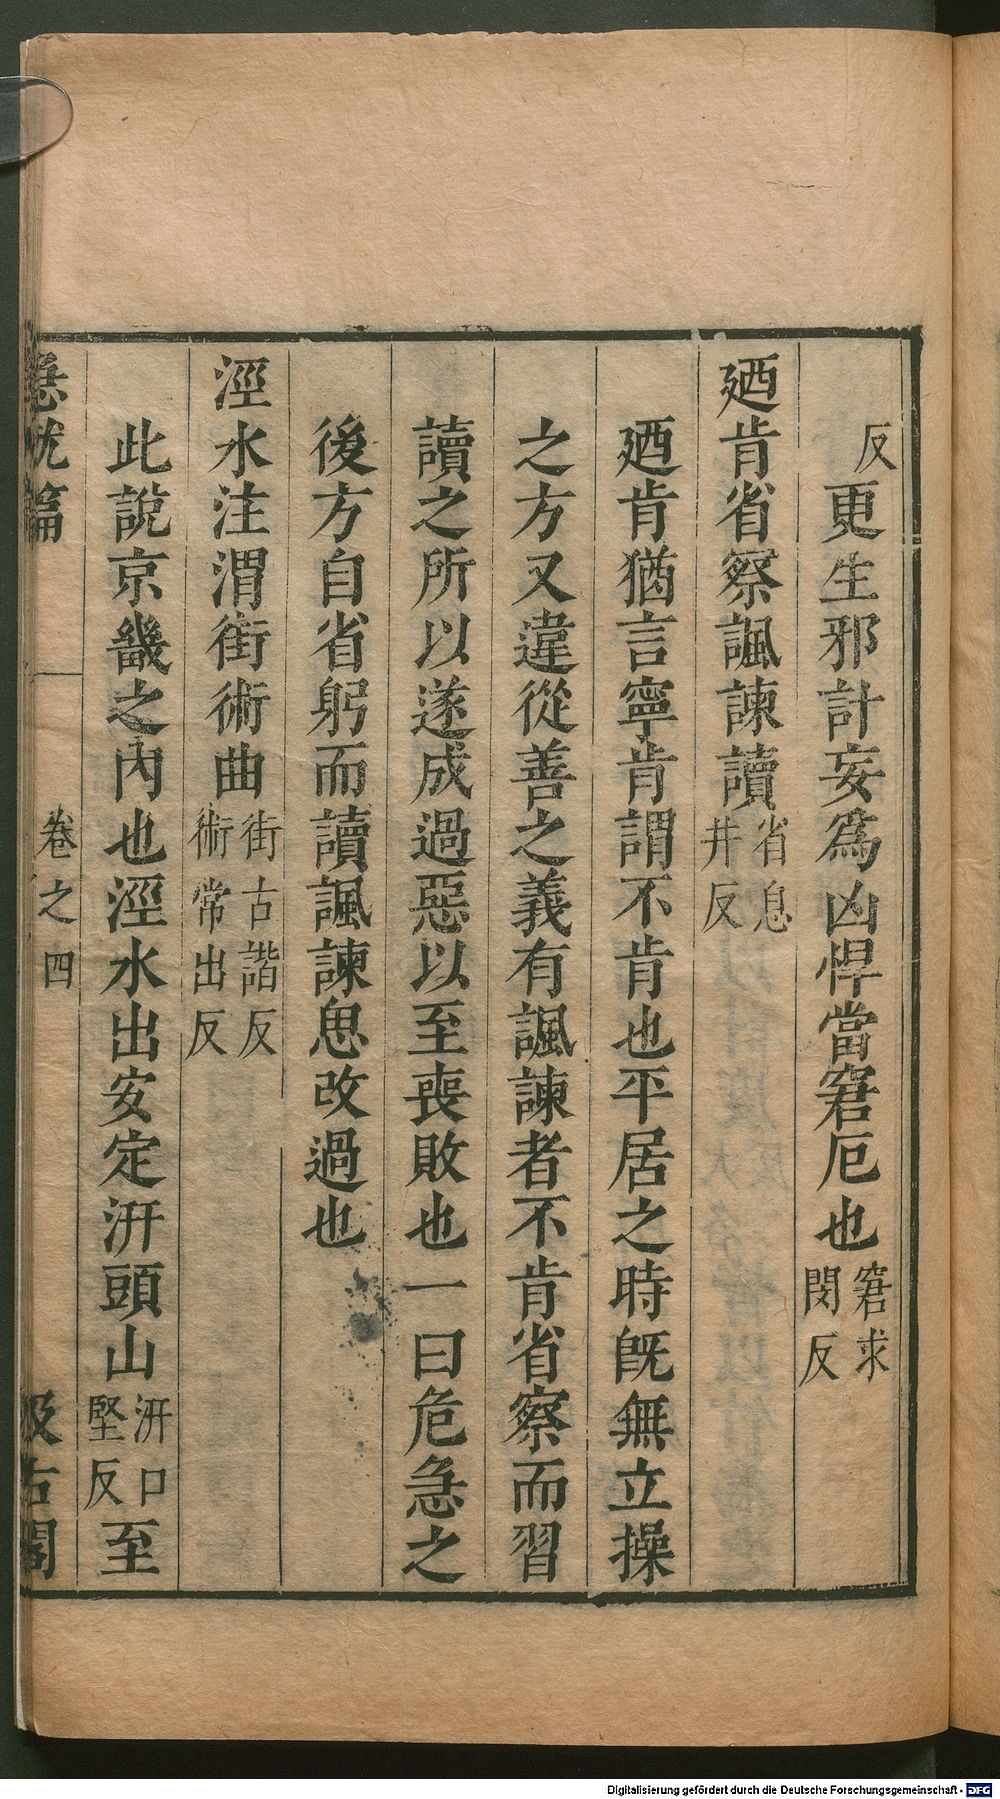 反更生邪計妄爲凶悍當窘厄也窘求閔反
廼肯省察諷諫讀省息井反
廼肯猶言寧肯謂不肯也平居之時旣無立操
之方又違從善之義有諷諫者不肯省察而習
讀之所以遂成過惡以至喪敗也一曰危急之
後方自省躬而讀諷諫思改過也
涇水注渭街術曲街古諧反術常出反
此說京畿之內也涇水出安定汧頭山汧口堅反至
急就篇 卷之四 汲古閣
Digitalisierung gefördert durch die Deutsche Forschungsgemeinschaft - DFG